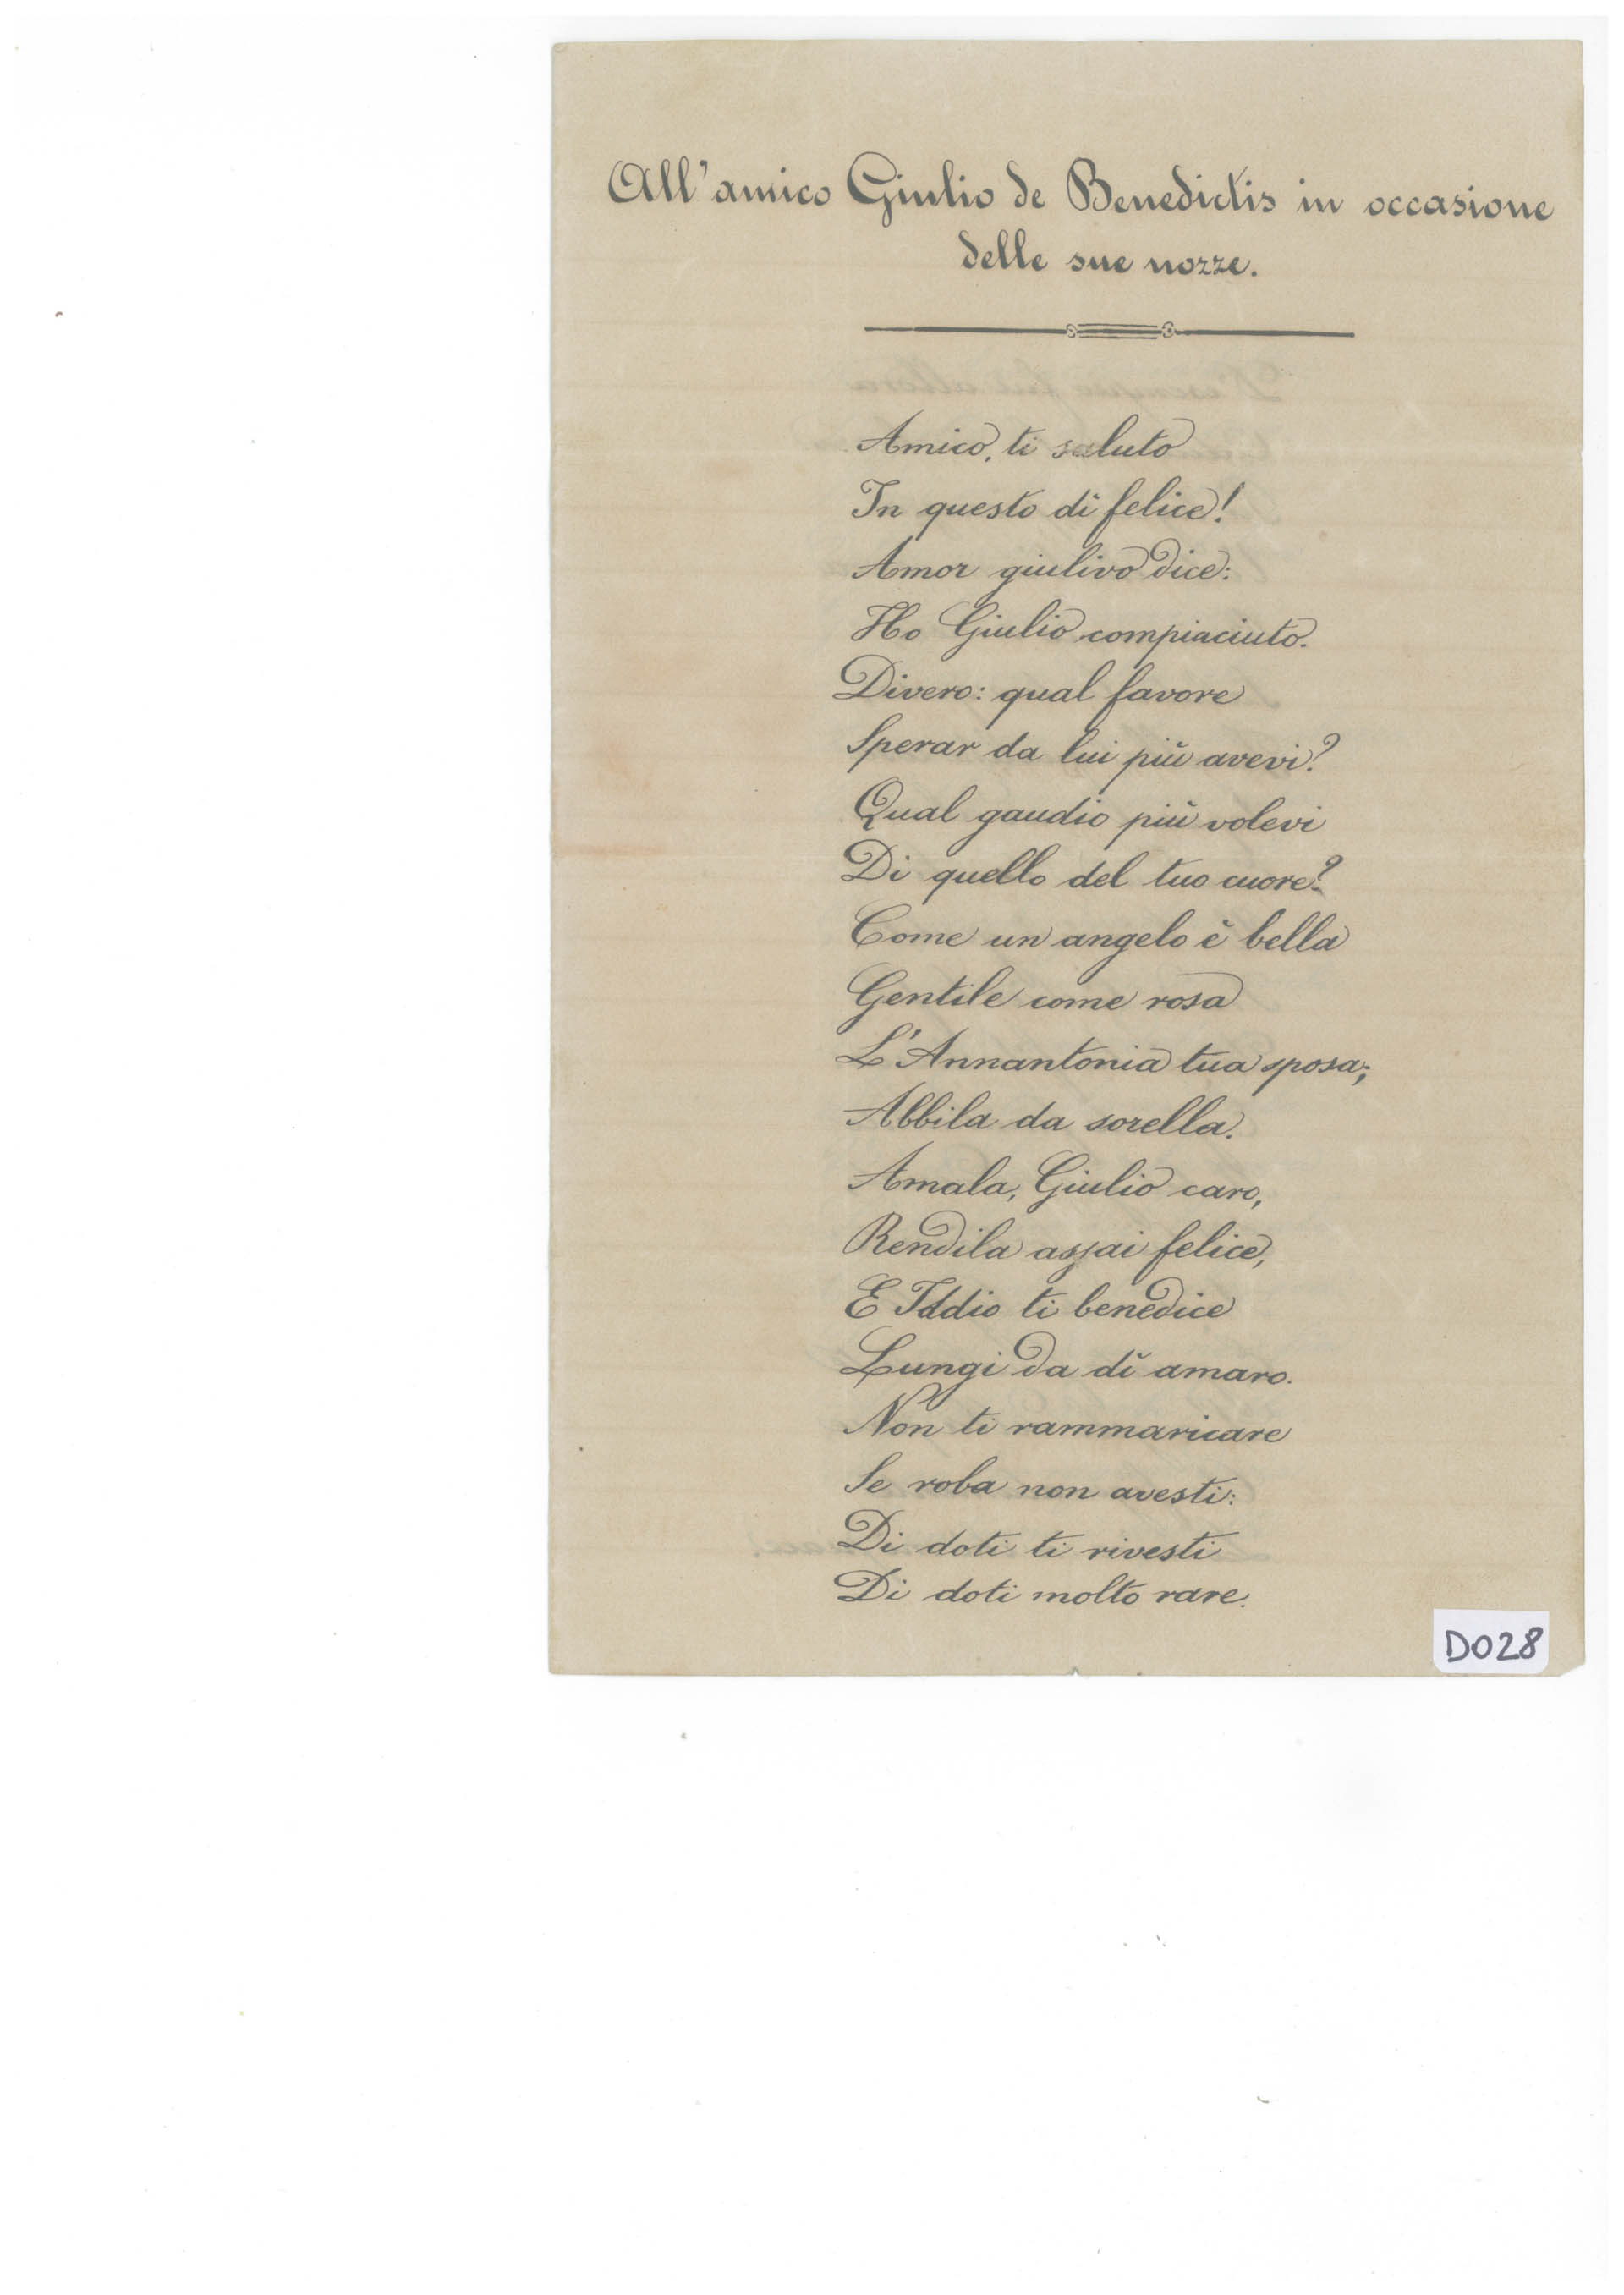 All'amico Giulio de Benedictis in occasione
delle sue nozze.
Amico, ti saluto
In questo dì felice!
Amor giulivo dice:
Ho Giulio compiaciuto.
Divero: qual favore
Sperar da lui più avevi?
Qual gaudio più volevi
Di quello del tuo cuore?
Come un angelo è bella
Gentile come rosa
L'Annantonia tua sposa;
Abbila da sorella.
Amala, Giulio caro,
Rendila assai felice,
E Iddio ti benedice
Lungi da dì amaro.
Non ti rammaricare
Se roba non avesti:
Di doti ti rivesti
Di doti molto rare.
D028